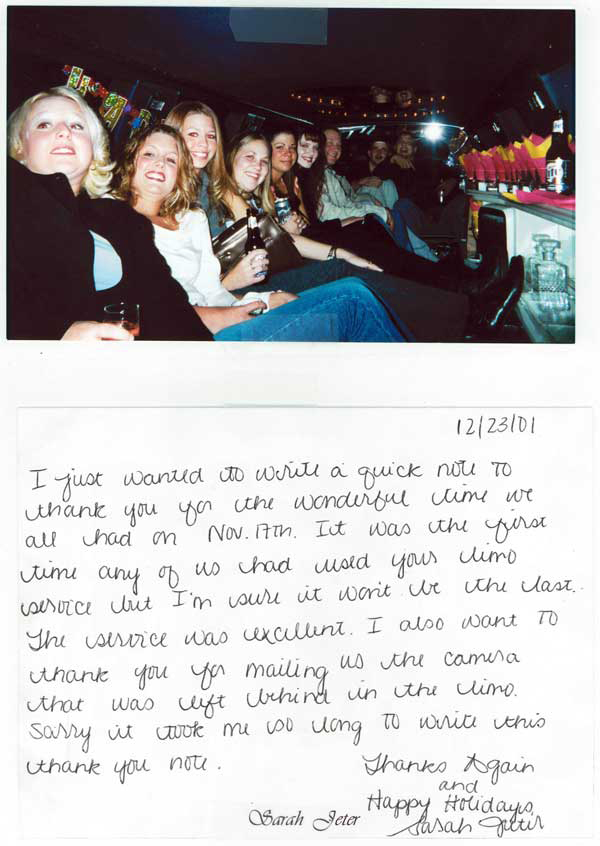 12/23/01
I just wanted to write a quick note to
thank you for the wonderful time we
all had on Nov. 17th. It was the first
time any of us had used your limo
service but I'm sure it won't be the last.
The service was excellent. I also want to
thank you for mailing us the camera
that was left behind in the limo.
Sorry it took me so long to write this
thank you note.
Thanks Again
and
Happy Holidays,
Sarah Jeter
Sarah Jeter